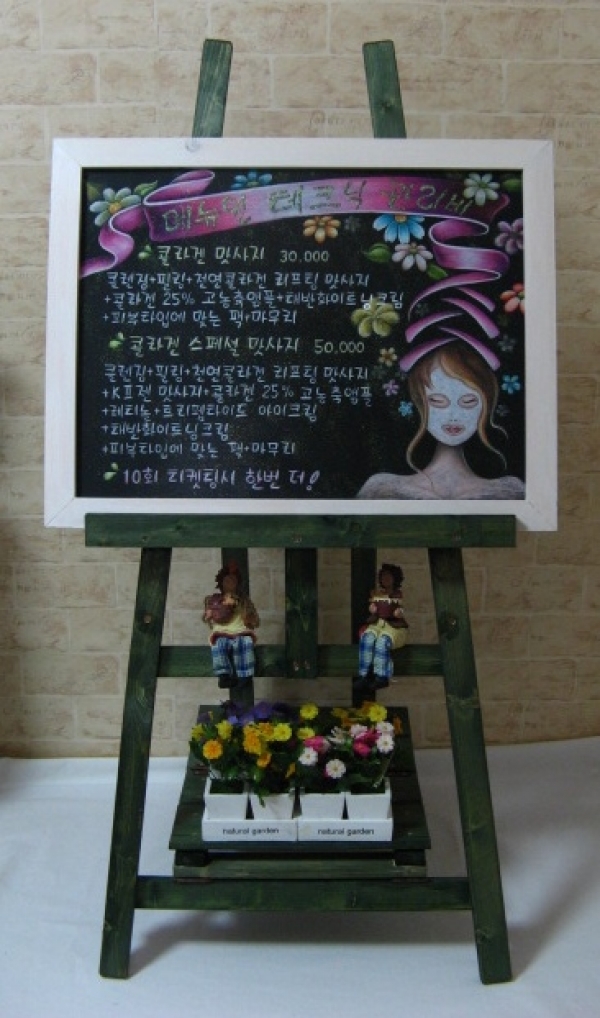 메뉴얼 테크닉 관리비
콜라겐 맛사지 30,000
클렌징+필링+천연콜라겐 리프팅 맛사지
+콜라겐 25% 고농축앰플+태반화이트닝크림
+피부타입에 맞는 팩+마무리
콜라겐 스페셜 맛사지 50,000
클렌징+필링+천연콜라겐 리프팅 맛사지
+K프렌 맛사지+콜라겐 25% 고농축앰플
+레티놀+트리펩타이드 아이크림
+태반화이트닝크림
+피부타입에 맞는 팩+마무리
10회 티켓팅시 한번 더!
natural garden natural garden